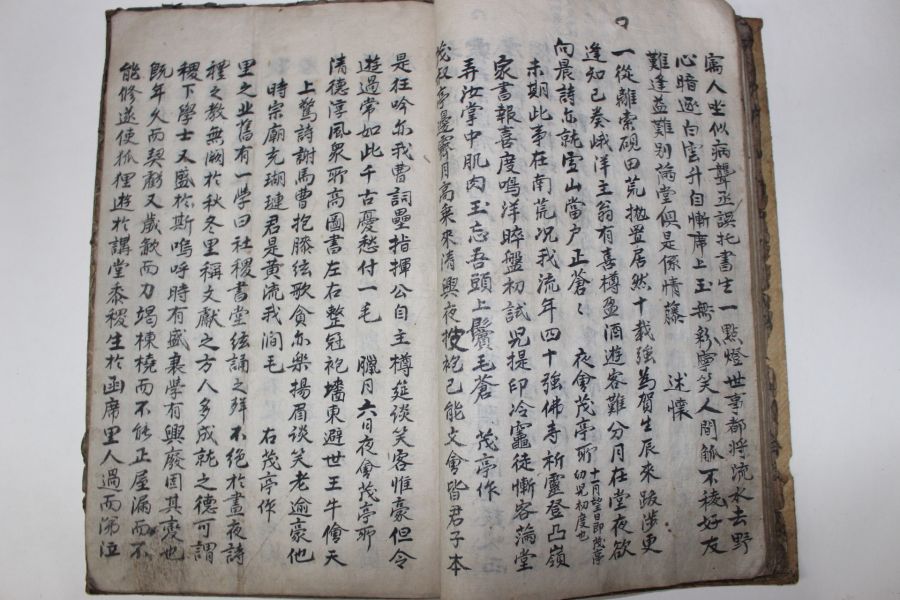 寓人坐似病聾丞誤托書生一點燈世事都將流水去野
心暗逐白雲升自慚席上玉無彩寧笑人間觚不稜好友
難逢益難別滿堂俱是係情藤 述懷
一從離索硯田荒拋置居然十載強為賀生辰來跋涉更
逢知己奏峨洋主翁有喜樽盈酒遊客難分月在堂夜欲
向晨詩亦就雪山當户正蒼〻 夜會茂亭所 十一月望日即茂亭幼兒初度也
未期此事在南荒况我流年四十強佛寺祈靈登凸嶺
家書報喜度鳴洋晬盤初試兒提印冷竈徒慚客滿堂
弄汝掌中肌肉玉忘吾頭上鬢毛蒼 茂亭作
茂叔亭邊霽月高乘來清興夜披袍已能文會皆君子本
是狂吟亦我曹詞壘指揮公自主樽筵談笑客惟豪但令
遊過常如此千古憂愁付一毛 臘月六日夜會茂亭所
清德淳風衆所高圖書左右整冠袍墻東避世王牛儈天
上驚詩謝馬曹抱膝絃歌貧亦樂揚眉談笑老逾豪他
時宗廟充瑚璉君是黃流我澗毛 右茂亭作
里之业舊有一學曰社稷書堂絃誦之聲不絕於晝夜詩
禮之教無闕於秋冬里稱文獻之方人多成就之德可謂
稷下學士又盛於斯嗚呼時有盛衰學有興廢固其變也
旣年久而契虧又歲歉而力竭棟橈而不能正屋漏而不
能修遂使狐狸遊於講堂黍稷生於函席里人過而涕泣